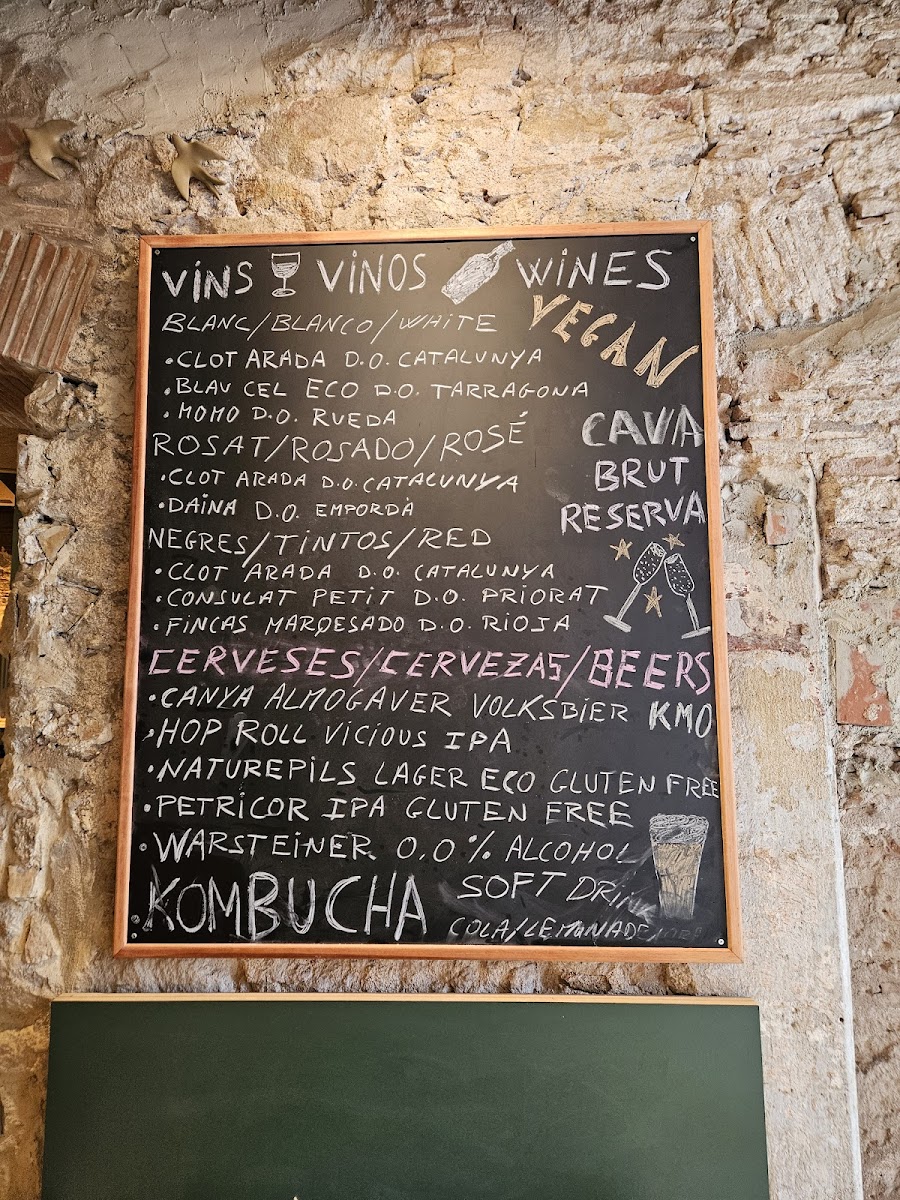 VINS VINOS WINES
VEGAN
BLANC/BLANCO/WHITE
•CLOT ARADA D.O. CATALUNYA
•BLAU CEL ECO D.O. TARRAGONA
•MOMO D.O. RUEDA
ROSAT/ROSADO/ROSÉ
•CLOT ARADA D.O. CATALUNYA
•DAINA D.O. EMPORDÀ
NEGRES/TINTOS/RED
•CLOT ARADA D.O. CATALUNYA
•CONSULAT PETIT D.O. PRIORAT
•FINCAS MARQESADO D.O. RIOJA
CAVA
BRUT
RESERVA
CERVESES/CERVEZAS/BEERS
•CANYA ALMOGAVER VOLKSBIER KM0
•HOP ROLL VICIOUS IPA
•NATUREPILS LAGER ECO GLUTEN FREE
•PETRICOR IPA GLUTEN FREE
•WARSTEINER 0,0% ALCOHOL
KOMBUCHA
SOFT DRINK
COLA/LEMONADE